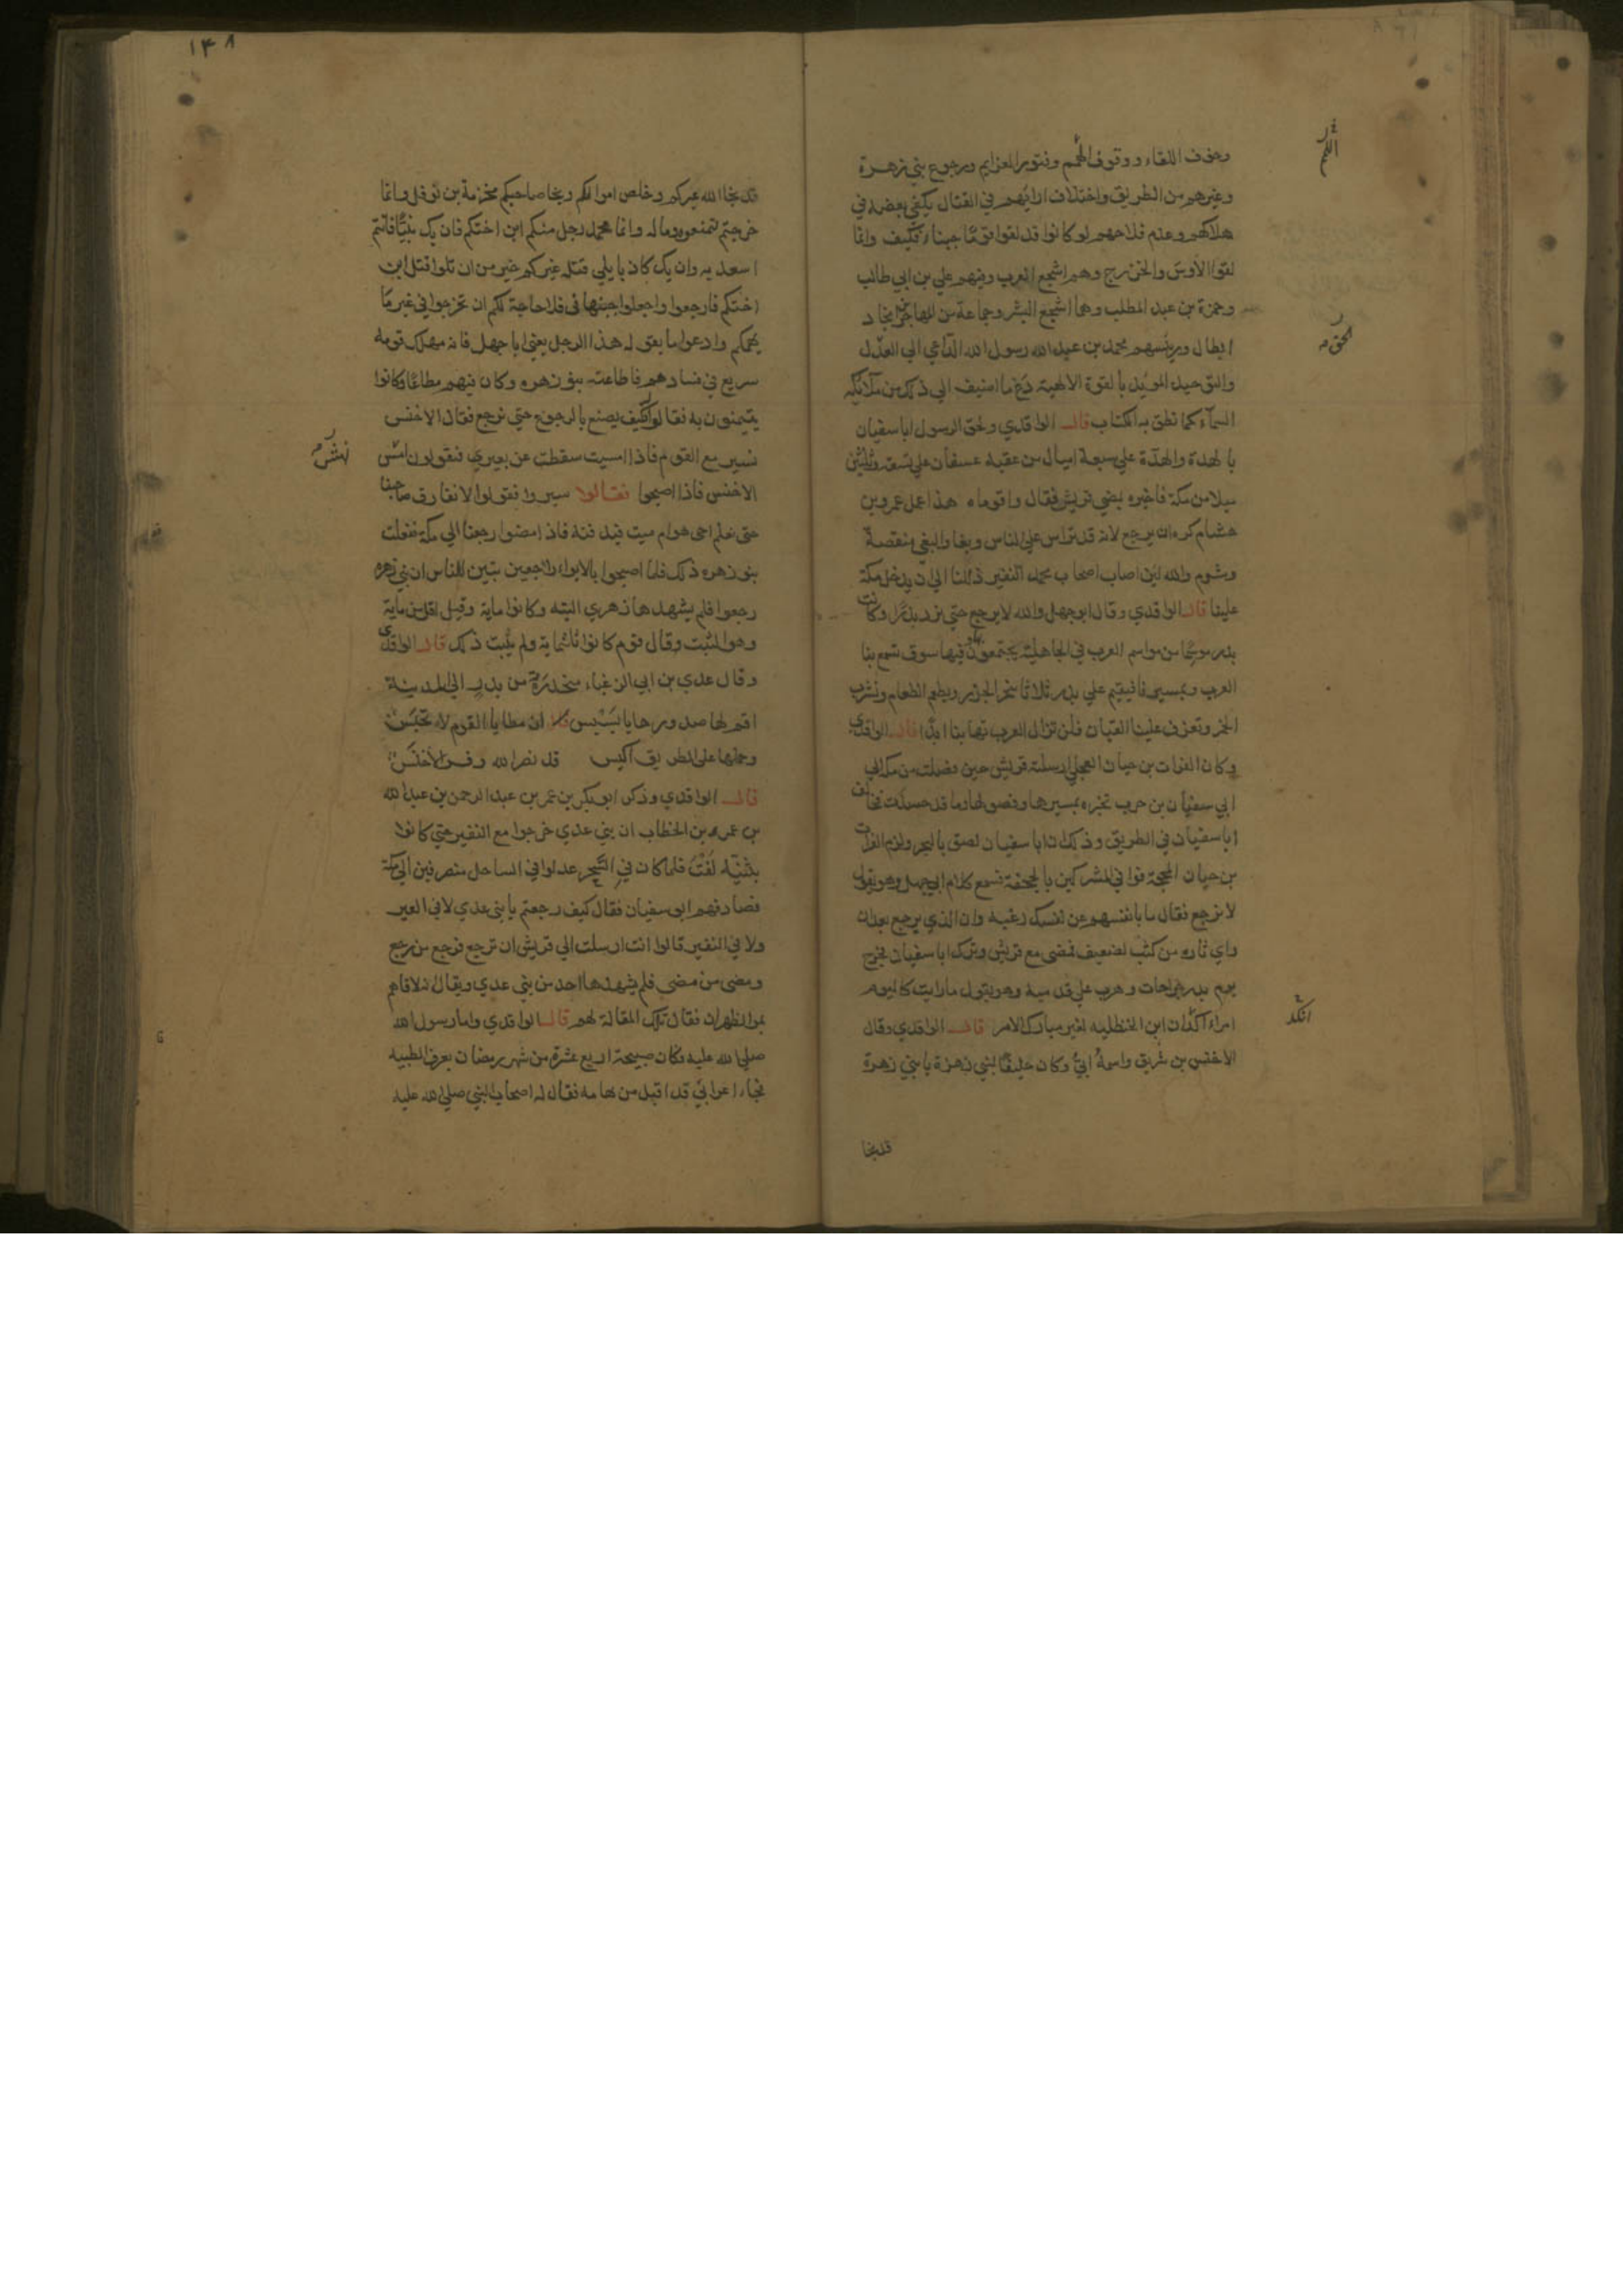 وخوف اللقاء ووقوف الهمم وفتور العزايم ورجوع بني زهرة
وغيرهم من الطريق واختلاف ارائهم في القتال يكفي بعضه في
هلاكهم وعدم فلاحهم لو كانوا قد لقوا قوما جبناء فكيف وانما
لقوا الأوس والخزرج وهم اشجع العرب وفيهم علي بن ابي طالب
وحمزة بن عبد المطلب وهما اشجع البشر وجماعة من المهاجرين انجاد
ابطال ورييسهم محمد بن عبد الله رسول الله الداعي الي العدل
والتوحيد المويد بالقوة الالهية دع ما اضيف الي ذلك من ملائكة
السماء كما نطق به الكتاب قال الواقدي ولحق الرسول ابا سفيان
بالهدة والهدة علي سبعة اميال من عقبة عسفان علي تسعة وثلثين
ميلا من مكة فاخبره بمضي قريش فقال واقوماه هذا عمل عمرو بن
هشام كره ان يرجع لانه قد تراس علي الناس وبغا والبغي منقصة
وشوم والله لين اصاب اصحاب محمد النفير ذللنا الي ان يدخل مكة
علينا قال الواقدي وقال ابو جهل والله لا نرجع حتي نرد بدرا وكانت
بدر موسما من مواسم العرب في الجاهلية يجتمعون بها فيها سوق تسمع بنا
العرب وبمسيرنا فنقيم علي بدر ثلاثا ننحر الجزر ونطعم الطعام ونشرب
الخمر وتعزف علينا القيان فلن تزال العرب تهابنا ابدا قال الواقدي
وكان الفرات بن حيان العجلي ارسلته قريش حين فصلت من مكة الي
ابي سفيان بن حرب تخبره بمسيرها وفصولها وما قد حسدت فخالف
ابا سفيان في الطريق وذلك ان ابا سفيان لصق بالبحر ولزم الفرات
بن حيان المحجة فوافي المشركين بالجحفة فسمع كلام ابي جهل وهو يقول
لا نرجع فقال ما بانفسهم عن نفسك رغبة وان الذي يرجع بعد ان
راي ثاره من كثب لضعيف فمضي مع قريش وترك ابا سفيان فجرح
يوم بدر جراحات وهرب علي قدميه وهو يقول ما رايت كاليوم
امرا اكدان ابن الحنظليه لغير مبارك الامر قال الواقدي وقال
الاخنس بن شريق واسمه ابي وكان حليفا لبني زهرة يا بني زهرة
قد نجا
انكد
١٤٨
قد نجا الله عيركم وخلص اموالكم ونجا صاحبكم مخزمة بن نوفل وانما
خرجتم لتمنعوه وماله وانما محمد رجل منكم ابن اختكم فان يك نبيا فانتم
اسعد به وان يك كاذبا يلي قتله غيركم خير من ان تلوا قتل ابن
اختكم فارجعوا واجعلوا جبنها في فلا حاجة لكم ان تخرجوا في غير ما
يهمكم وادعوا ما يقوله هذا الرجل يعني ابا جهل فانه مهلك قومه
سريع في فسادهم فاطاعته بنو زهره وكان فيهم مطاعا وكانوا
يتيمنون به فقالوا فكيف يصنع بالرجوع حتي نرجع فقال الاخنس
نسير مع القوم فاذا امسيت سقطت عن بعيري فتقولون نهش
الاخنس فاذا اصبحوا فقالوا سيروا فقولوا لا نفارق صاحبنا
حتي نعلم احي هو ام ميت فندفنه فاذا مضوا رجعنا الي مكة ففعلت
بنو زهره ذلك فلما اصبحوا بالابواء راجعين تبين للناس ان بني زهره
رجعوا فلم يشهدها زهري البته وكانوا ماية وقيل اقل من ماية
وهو المثبت وقال قوم كانوا ثلثماية ولم يثبت ذلك قال الواقدي
وقال عدي بن ابي الزغباء منحدره من بدر الي المدينة
اقم لها صدورها يا بسبس ان مطايا القوم لا تحبس
وحملها علي الطريق اكيس قد نصر الله وفر الاخنس
قال الواقدي وذكر ابو بكر بن عمر بن عبد الرحمن بن عبد الله
بن عمر بن الخطاب ان بني عدي خرجوا مع النفير حتي كانوا
بثنية لفت فلما كان في السحر عدلوا في الساحل منصرفين الي مكة
فصادفهم ابو سفيان فقال كيف رجعتم يا بني عدي لا في العير
ولا في النفير قالوا انت ارسلت الي قريش ان ترجع فرجع من رجع
ومضي من مضي فلم يشهدها احد من بني عدي ويقال انه لاقاهم
بمر الظهران فقال تلك المقالة لهم قال الواقدي واما رسول الله
صلي الله عليه فكان صبيحة اربع عشرة من شهر رمضان بعرق الظبيه
فجاء اعرابي قد اقبل من تهامه فقال له اصحاب النبي صلي الله عليه